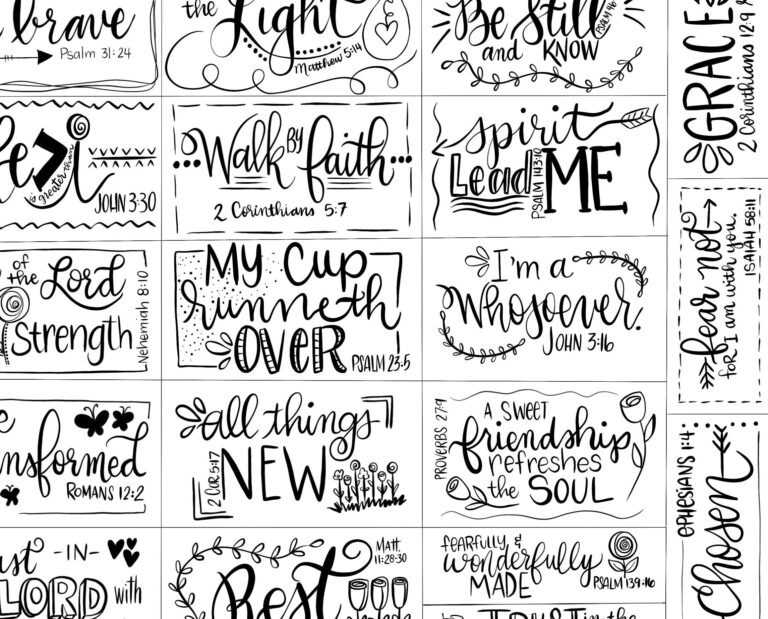 brave
Psalm 31:24
the Light
Matthew 5:14
Be Still
PSALM 46
and KNOW
GRACE
2 Corinthians 12:9
is greater than
JOHN 3:30
Walk BY faith
2 Corinthians 5:7
spirit
Lead ME
PSALM 143:10
fear not
for I am with you.
ISAIAH 58:11
of
the Lord
Strength
Nehemiah 8:10
My Cup
runneth
OVER
PSALM 23:5
I'm a
Whosoever.
JOHN 3:16
nsformed
ROMANS 12:2
all things
NEW
2 COR. 5:17
PROVERBS 27:9
A SWEET
friendship
refreshes
the SOUL
EPHESIANS 1:4
Chosen
ust -IN-
LORD with
Rest
Matt.
11:28-30
fearfully &
wonderfully
MADE
PSALM 139:16
TRUST in the